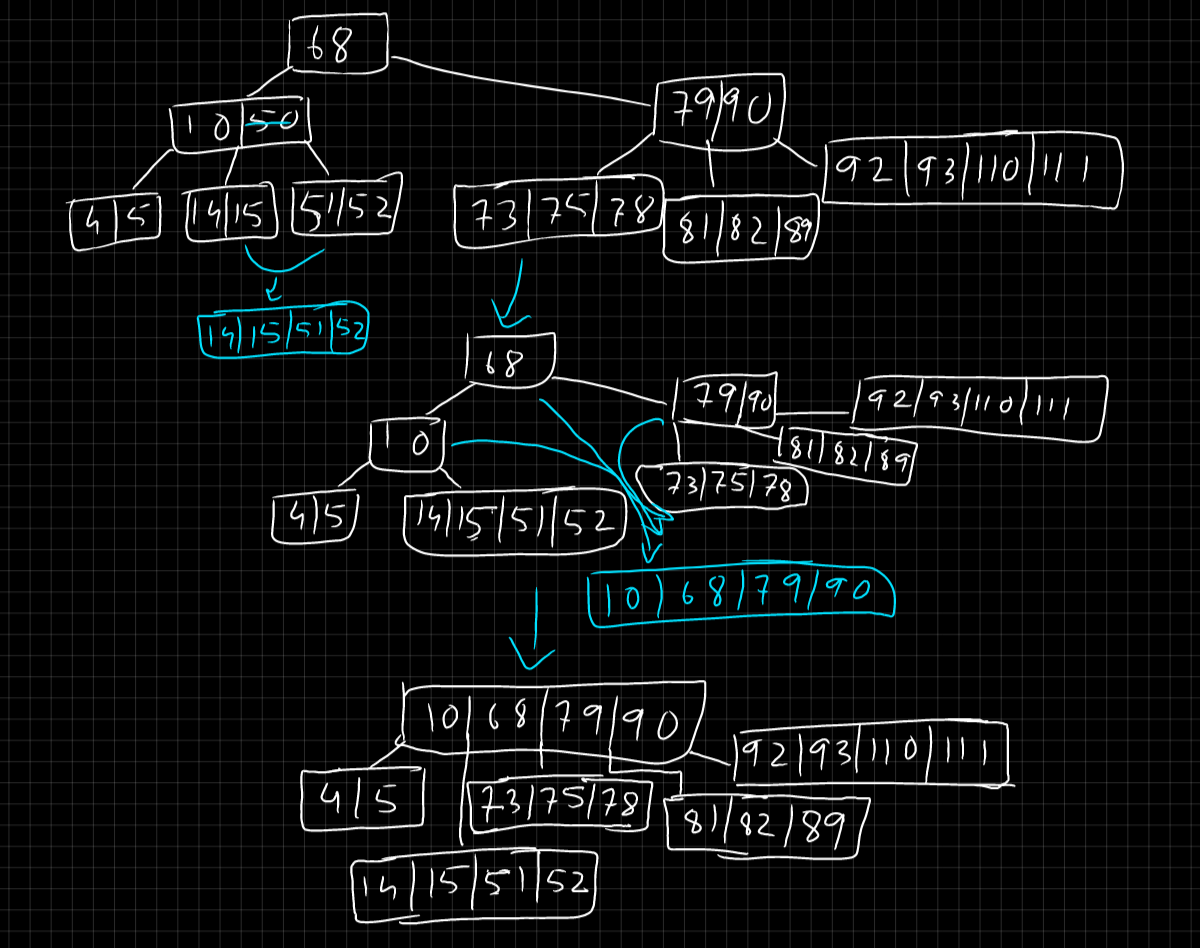 68
10|50
79|90
92|93|110|111
4|5
14|15
51|52
73|75|78
81|82|89
14|15|51|52
68
10
79|90
92|93|110|111
81|82|89
73|75|78
4|5
14|15|51|52
10|68|79|90
10|68|79|90
92|93|110|111
4|5
73|75|78
81|82|89
14|15|51|52